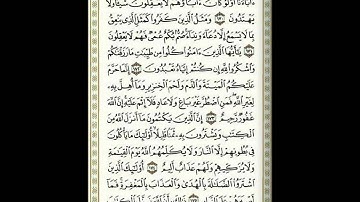 ءَابَآءَنَآ أَوَلَوْ كَانَ ءَابَآؤُهُمْ لَا يَعْقِلُونَ شَيْـًٔا وَلَا
يَهْتَدُونَ ١٧٠ وَمَثَلُ ٱلَّذِينَ كَفَرُوا۟ كَمَثَلِ ٱلَّذِى يَنْعِقُ
بِمَا لَا يَسْمَعُ إِلَّا دُعَآءً وَنِدَآءً صُمٌّۢ بُكْمٌ عُمْىٌ فَهُمْ لَا يَعْقِلُونَ
١٧١ يَٰٓأَيُّهَا ٱلَّذِينَ ءَامَنُوا۟ كُلُوا۟ مِن طَيِّبَٰتِ مَا رَزَقْنَٰكُمْ
وَٱشْكُرُوا۟ لِلَّهِ إِن كُنتُمْ إِيَّاهُ تَعْبُدُونَ ١٧٢ إِنَّمَا حَرَّمَ
عَلَيْكُمُ ٱلْمَيْتَةَ وَٱلدَّمَ وَلَحْمَ ٱلْخِنزِيرِ وَمَآ أُهِلَّ بِهِۦ
لِغَيْرِ ٱللَّهِ فَمَنِ ٱضْطُرَّ غَيْرَ بَاغٍ وَلَا عَادٍ فَلَآ إِثْمَ عَلَيْهِ إِنَّ ٱللَّهَ
غَفُورٌ رَّحِيمٌ ١٧٣ إِنَّ ٱلَّذِينَ يَكْتُمُونَ مَآ أَنزَلَ ٱللَّهُ مِنَ
ٱلْكِتَٰبِ وَيَشْتَرُونَ بِهِۦ ثَمَنًا قَلِيلًا أُو۟لَٰٓئِكَ مَا يَأْكُلُونَ
فِى بُطُونِهِمْ إِلَّا ٱلنَّارَ وَلَا يُكَلِّمُهُمُ ٱللَّهُ يَوْمَ ٱلْقِيَٰمَةِ
وَلَا يُزَكِّيهِمْ وَلَهُمْ عَذَابٌ أَلِيمٌ ١٧٤ أُو۟لَٰٓئِكَ ٱلَّذِينَ
ٱشْتَرَوُا۟ ٱلضَّلَٰلَةَ بِٱلْهُدَىٰ وَٱلْعَذَابَ بِٱلْمَغْفِرَةِ فَمَآ